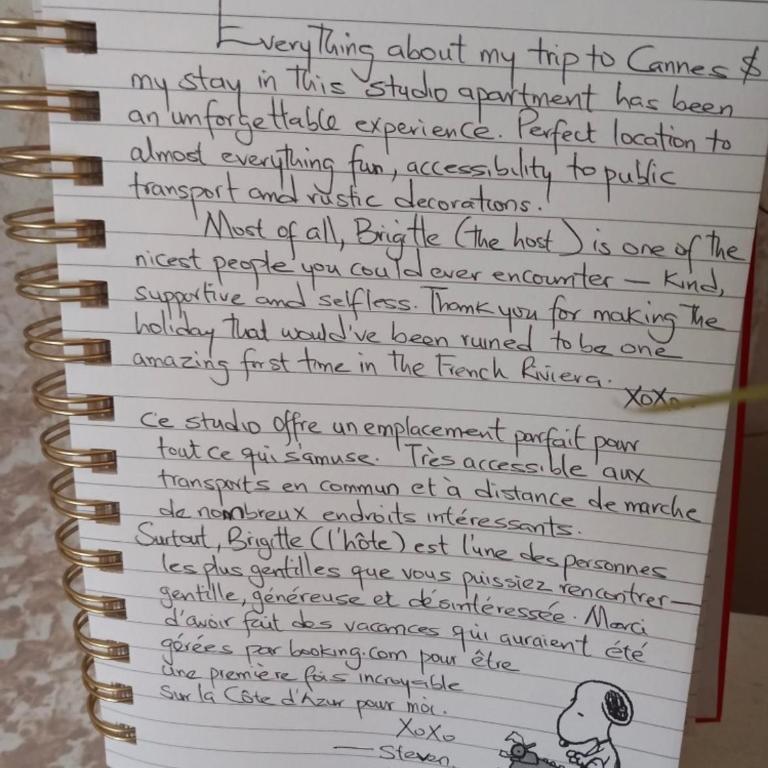 Everything about my trip to Cannes &
my stay in this studio apartment has been
an unforgettable experience. Perfect location to
almost everything fun, accessibility to public
transport and rustic decorations.
Most of all, Brigitte (the host) is one of the
nicest people you could ever encounter — Kind,
supportive and selfless. Thank you for making the
holiday that would've been ruined to be one
amazing first time in the French Riviera.
XoXo
Ce studio offre un emplacement parfait pour
tout ce qui s'amuse. Très accessible aux
transports en commun et à distance de marche
de nombreux endroits intéressants.
Surtout, Brigitte (l'hôte) est l'une des personnes
les plus gentilles que vous puissiez rencontrer —
gentille, généreuse et désintéressée. Merci
d'avoir fait des vacances qui auraient été
gérées par booking.com pour être
une première fois incroyable
sur la Côte d'Azur pour moi.
XoXo
— Steven